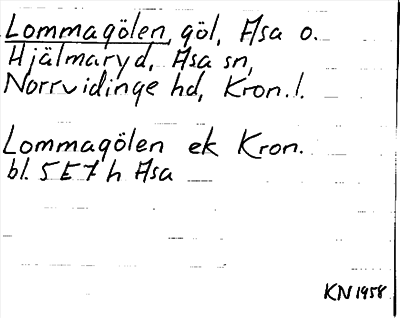 Lommagölen, göl, Asa o.
Hjälmaryd, Asa sn,
Norrvidinge hd, Kron. l.
Lommagölen ek Kron.
bl. 5E7h Asa
KN 1958